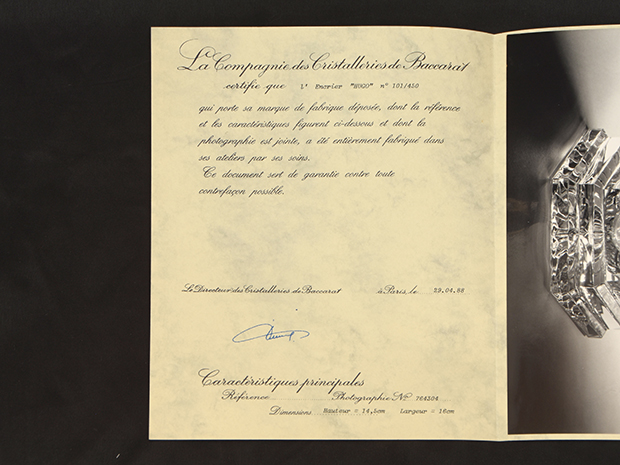 La Compagnie des Cristalleries de Baccarat
certifie que L' Encrier "HUGO" n° 101/450
qui porte sa marque de fabrique déposée, dont la référence
et les caractéristiques figurent ci-dessous et dont la
photographie est jointe, a été entièrement fabriqué dans
ses ateliers par ses soins.
Ce document sert de garantie contre toute
contrefaçon possible.
Le Directeur des Cristalleries de Baccarat à Paris, le 29.04.88
Caractéristiques principales
Référence Photographie N° 764304
Dimensions Hauteur = 14,5cm Largeur = 16cm